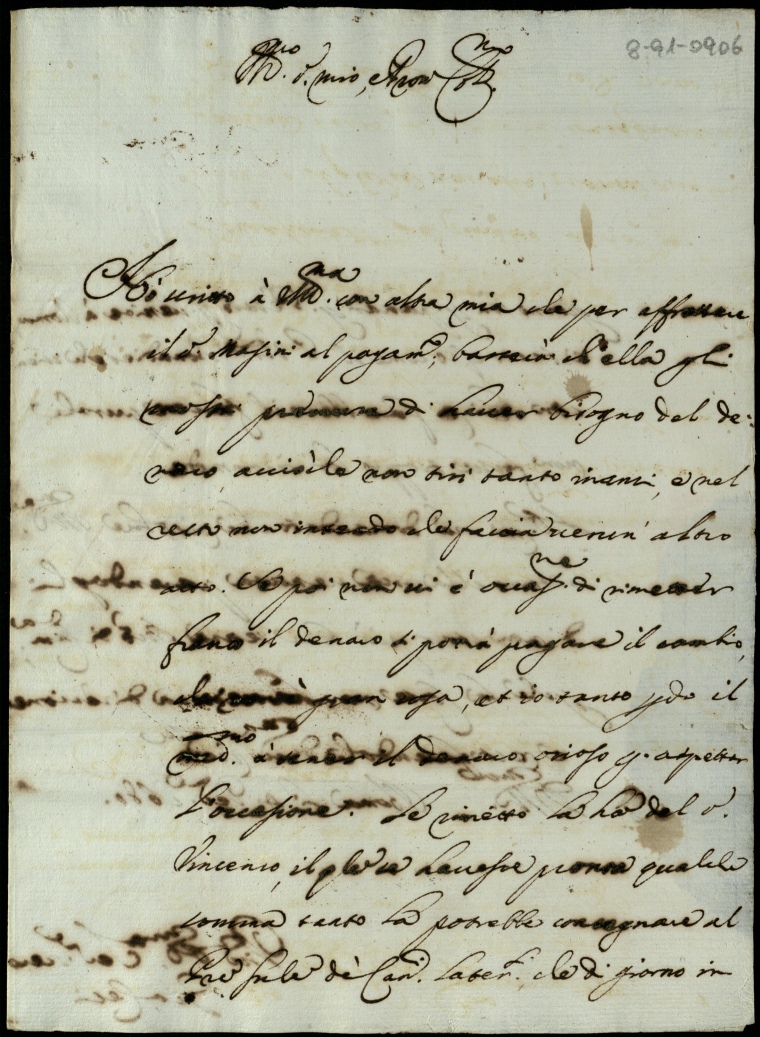 8-91-0906
Ill.mo S. mio, e Pron Col.mo
Hò scritto à V.S. Ill.ma con altra mia che per affrettare
il S. Masini al pagam.to, basterà ch'ella gli
mostri premura di haver bisogno del de-
naro, acciòche non tiri tanto inanzi, e nel
resto non intendo che faccia verun' altro
atto. Se poi non vi è occas.ne di rimetter
franco il denaro si potrà pagare il cambio,
che non è gran cosa, et io tanto pdo il
med.mo à tener il denaro ozioso p. aspettar
l'occasione. Le rimetto la lra del S.
Vincenzo, il qle se havesse pronta qualche
somma tanto la potrebbe consegnare al
Pre de Can. Later. che di giorno in